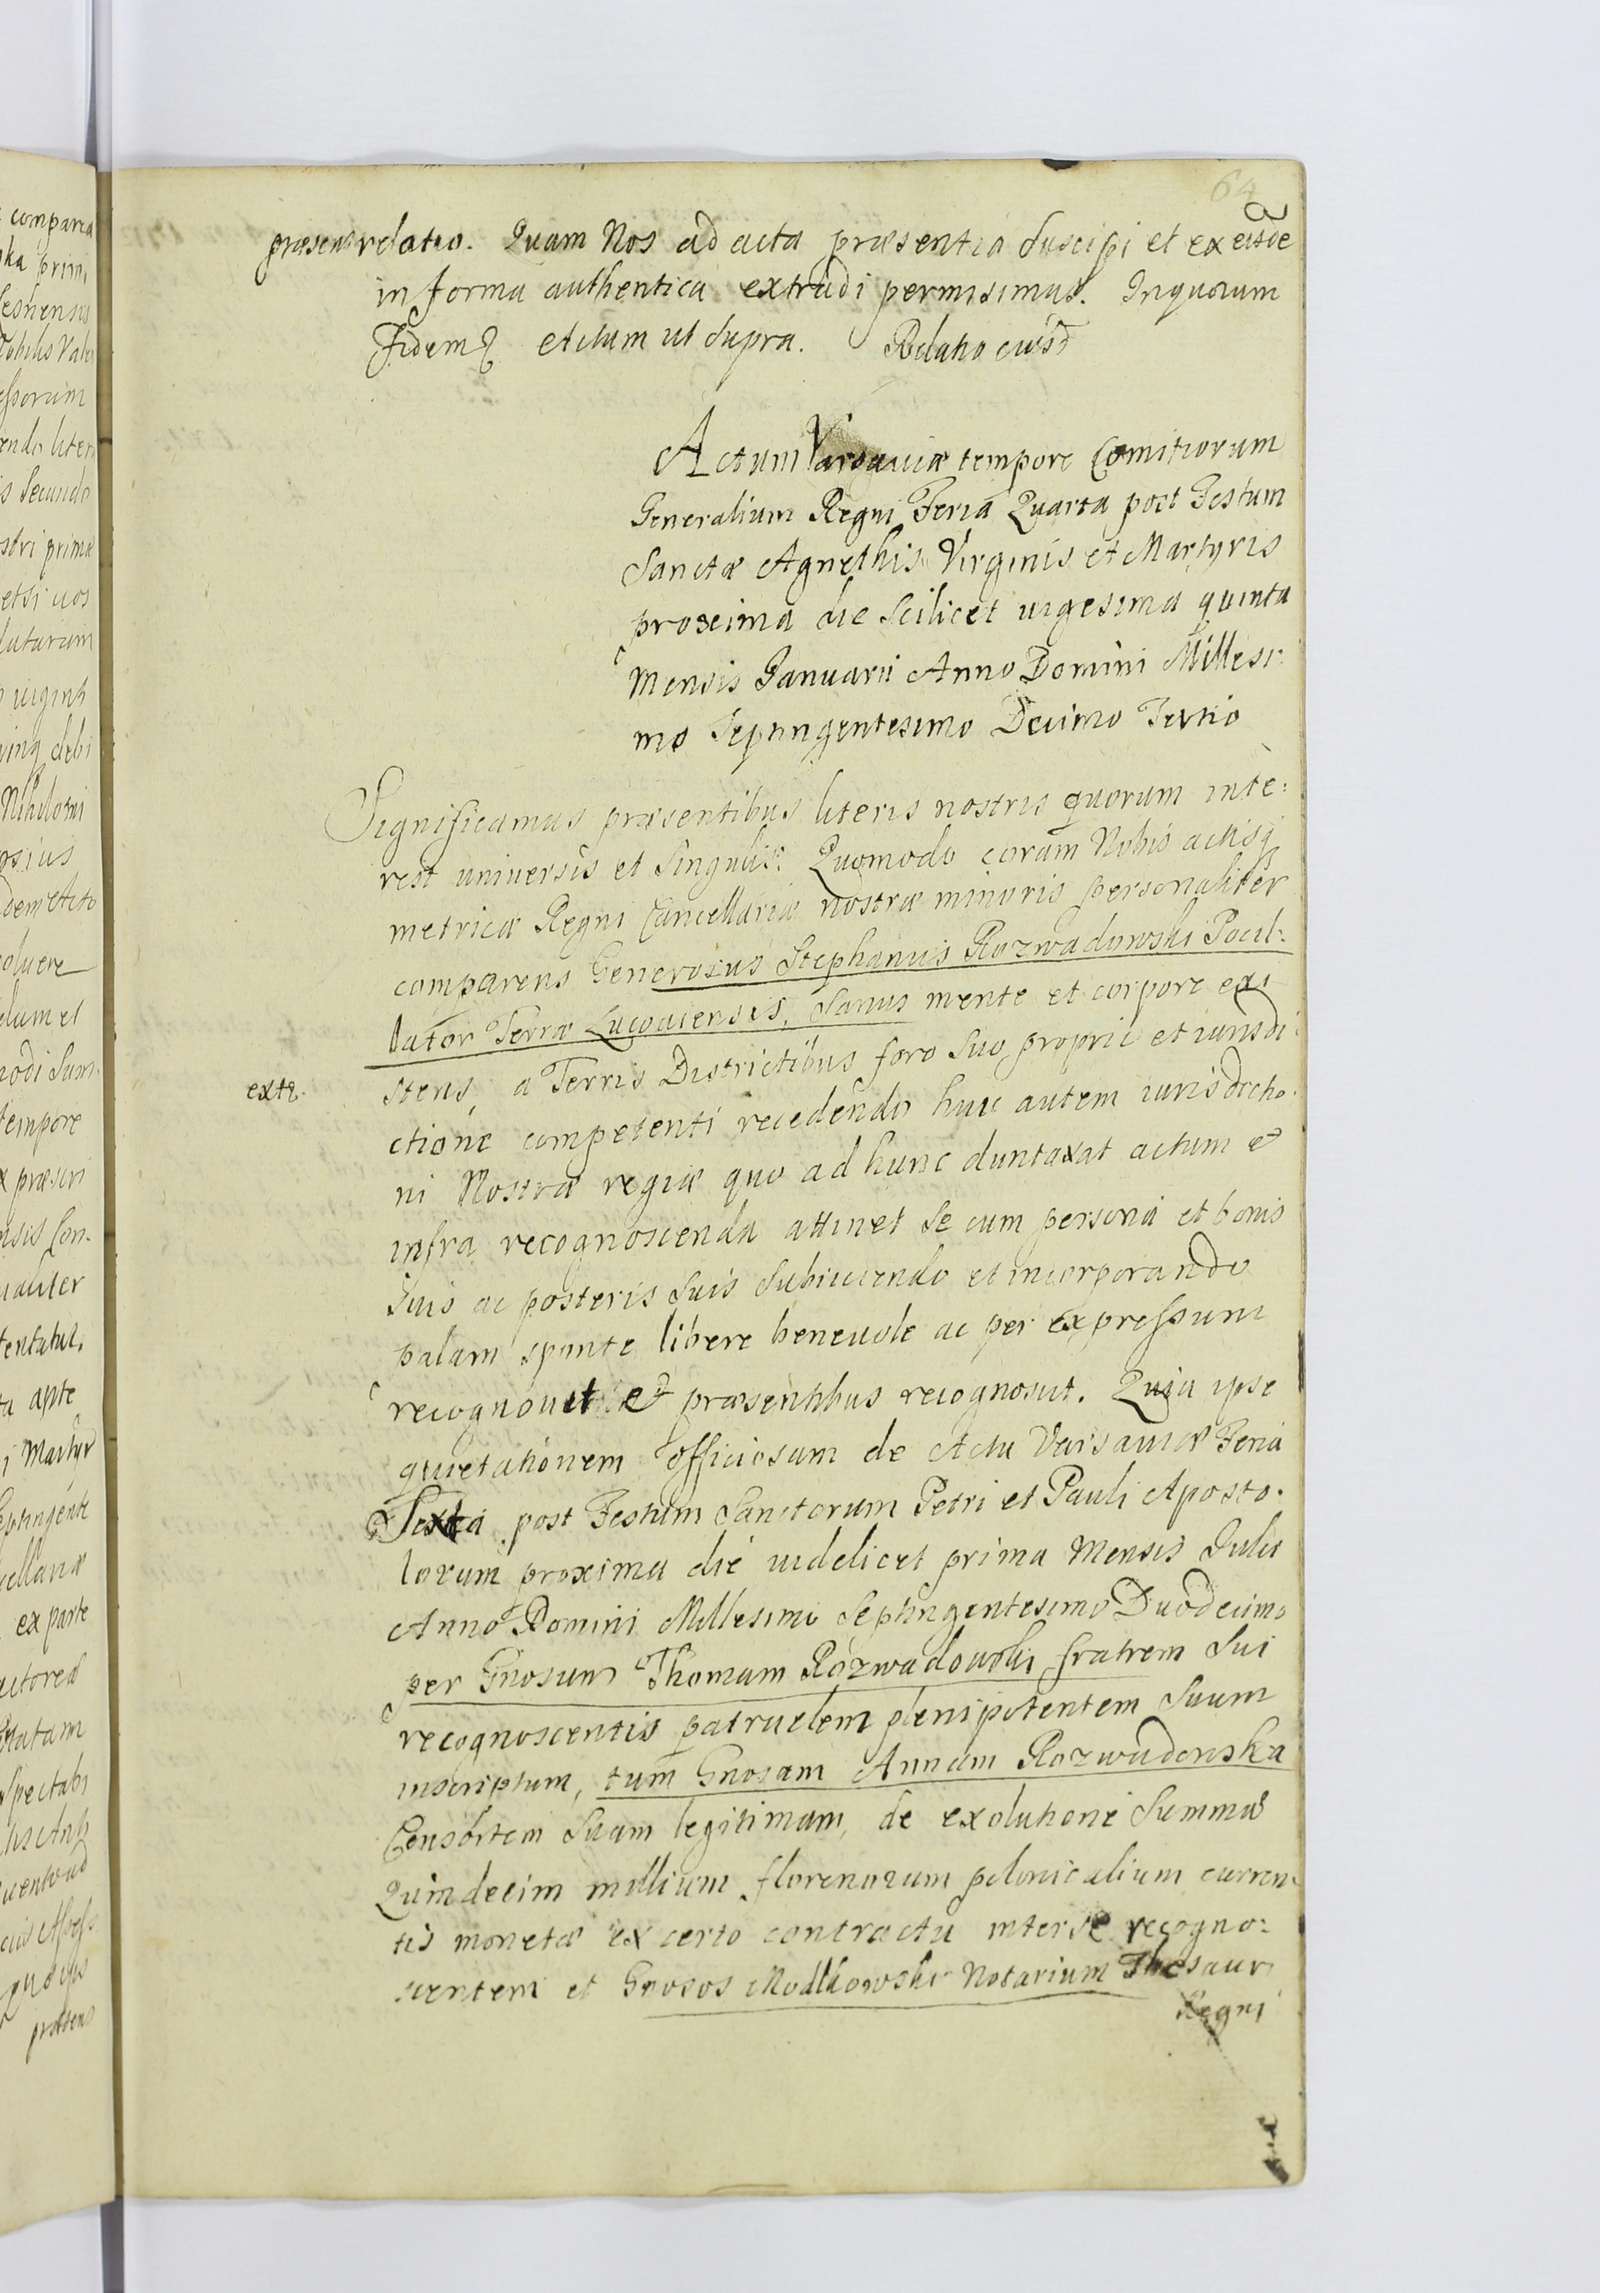 64
præsens relatio. Quam Nos ad acta præsentia suscipi et ex eisde
in forma authentica extradi permisimus. Inquorum
Fidem etctum ut supra. Relatio eiusd
Actum Varsaviæ tempore Comitiorum
Generalium Regni Feria Quarta post Festum
Sanctæ Agnethis Virginis et Martyris
proxima die Scilicet vigesima quinta
Mensis Januarii Anno Domini Millesi:
mo Septingentesimo Decimo Tertio
Significamus præsentibus literis nostris quorum inte:
rest universis et singulis: Quomodo coram Nobis actisq
metricæ Regni Cancellariæ nostræ minoris personaliter
comparens Generosus Stephanus Rozwadowski Pocil:
lator Terræ Lucoviensis, Sanus mente et corpore exi
extr.
stens, a Terris Districtibus foro suo proprie et iurisdi:
ctione competenti recedendo huic autem iurisdictio:
ni Nostræ regiæ quo ad hunc duntaxat actum et
infra recognoscenda attinet se cum persona et bonis
suis ac posteris suis subiiciendo et incorporando
palam sponte libere benevole ac per expressum
recognovit et præsentibus recognoscit. Quia ipse
quietationem officiosam de Actu Varsaviæ Feria
Sexta post Festum Sanctorum Petri et Pauli Aposto:
lorum proxima die videlicet prima Mensis Julii
Anno Domini Millesimo Septingentesimo Duodecimo
per Gnosum Thomam Rozwadowski fratrem Sui
recognoscentis patruelem plenipotentem Suum
inscriptum, tum Gnosam Annam Rozwadowska
Consortem Suam legitimam, de exolutione Summæ
Quindecim millium florenorum polonicalium curren:
tis monetæ ex certo contractu inter se recogno:
scentem et Gnosos Modlkowski Notarium Thesauri
Regni